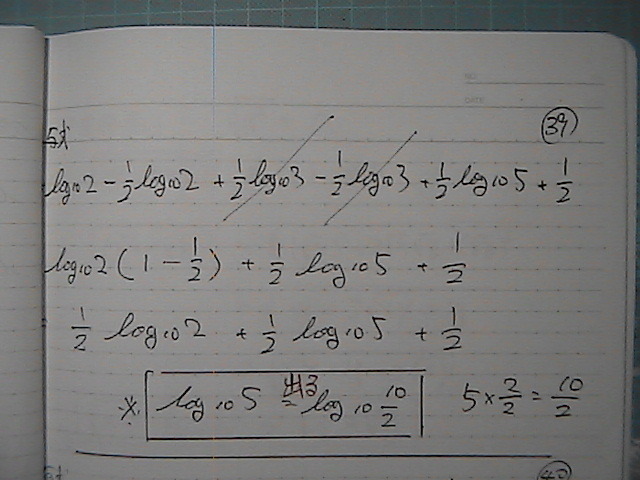 NO.
DATE
39
与式
log₁₀2 - 1/2 log₁₀2 + 1/2 log₁₀3 - 1/2 log₁₀3 + 1/2 log₁₀5 + 1/2
log₁₀2 (1 - 1/2) + 1/2 log₁₀5 + 1/2
1/2 log₁₀2 + 1/2 log₁₀5 + 1/2
※ log₁₀5 = log₁₀ 10/2 5 × 2/2 = 10/2